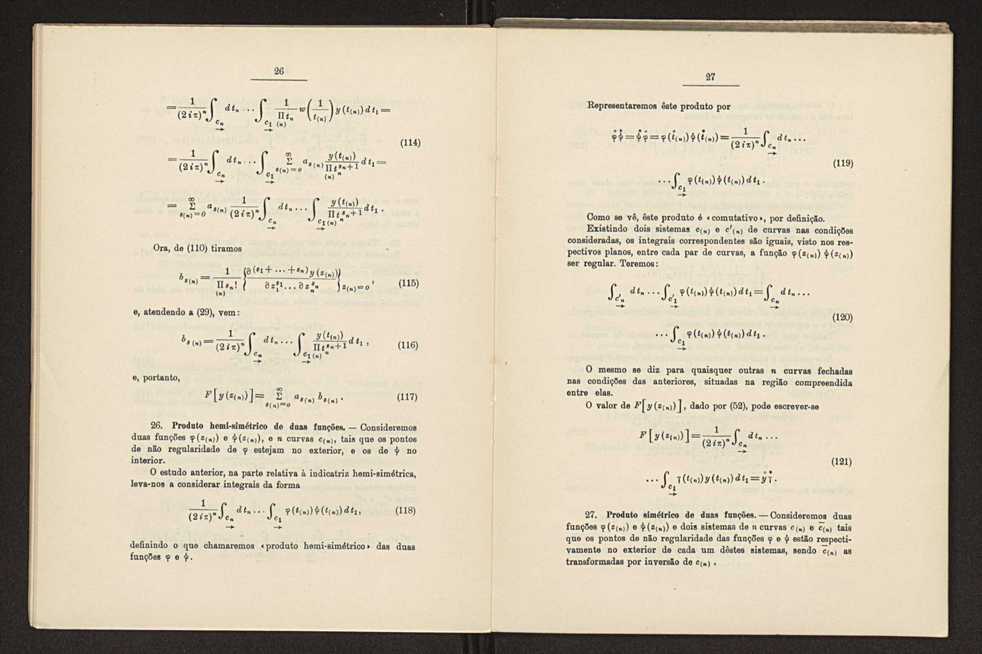 26
= \frac{1}{(2 i π)^n} ∫_{c_n} d t_n ... ∫_{c_1} \frac{1}{Π_{(n)} t_n} w ( \frac{1}{t_{(n)}} ) y (t_{(n)}) d t_1 =
= \frac{1}{(2 i π)^n} ∫_{c_n} d t_n ... ∫_{c_1} Σ_{s_{(n)}=0}^{∞} a_{s_{(n)}} \frac{y (t_{(n)})}{Π_{(n)} t_n^{s_n+1}} d t_1 = (114)
= Σ_{s_{(n)}=0}^{∞} a_{s_{(n)}} \frac{1}{(2 i π)^n} ∫_{c_n} d t_n ... ∫_{c_1} \frac{y (t_{(n)})}{Π_{(n)} t_n^{s_n+1}} d t_1 .
Ora, de (110) tiramos
b_{s_{(n)}} = \frac{1}{Π_{(n)} s_n!} { \frac{∂^{(s_1 + ... + s_n)} y (z_{(n)})}{∂ z_1^{s_1} ... ∂ z_n^{s_n}} }_{z_{(n)}=0} , (115)
e, atendendo a (29), vem:
b_{s_{(n)}} = \frac{1}{(2 i π)^n} ∫_{c_n} d t_n ... ∫_{c_1} \frac{y (t_{(n)})}{Π_{(n)} t_n^{s_n+1}} d t_1 , (116)
e, portanto,
F [ y (z_{(n)}) ] = Σ_{s_{(n)}=0}^{∞} a_{s_{(n)}} b_{s_{(n)}} . (117)
26. Produto hemi-simétrico de duas funções. — Consideremos
duas funções φ (z_{(n)}) e ψ (z_{(n)}), e n curvas c_{(n)}, tais que os pontos
de não regularidade de φ estejam no exterior, e os de ψ no
interior.
O estudo anterior, na parte relativa à indicatriz hemi-simétrica,
leva-nos a considerar integrais da forma
\frac{1}{(2 i π)^n} ∫_{c_n} d t_n ... ∫_{c_1} φ (t_{(n)}) ψ (t_{(n)}) d t_1, (118)
definindo o que chamaremos «produto hemi-simétrico» das duas
funções φ e ψ.
27
Representaremos êste produto por
\mathring{φ} \dot{ψ} = \dot{ψ} \mathring{φ} = φ (\mathring{t}_{(n)}) ψ (\dot{t}_{(n)}) = \frac{1}{(2 i π)^n} ∫_{c_n} d t_n ...
(119)
... ∫_{c_1} φ (t_{(n)}) ψ (t_{(n)}) d t_1 .
Como se vê, êste produto é «comutativo», por definição.
Existindo dois sistemas c_{(n)} e c'_{(n)} de curvas nas condições
consideradas, os integrais correspondentes são iguais, visto nos res-
pectivos planos, entre cada par de curvas, a função φ (z_{(n)}) ψ (z_{(n)})
ser regular. Teremos:
∫_{c'_n} d t_n ... ∫_{c'_1} φ (t_{(n)}) ψ (t_{(n)}) d t_1 = ∫_{c_n} d t_n ...
(120)
... ∫_{c_1} φ (t_{(n)}) ψ (t_{(n)}) d t_1 .
O mesmo se diz para quaisquer outras n curvas fechadas
nas condições das anteriores, situadas na região compreendida
entre elas.
O valor de F [ y (z_{(n)}) ], dado por (52), pode escrever-se
F [ y (z_{(n)}) ] = \frac{1}{(2 i π)^n} ∫_{c_n} d t_n ...
(121)
... ∫_{c_1} γ (t_{(n)}) y (t_{(n)}) d t_1 = \mathring{y} \dot{γ} .
27. Produto simétrico de duas funções. — Consideremos duas
funções φ (z_{(n)}) e ψ (z_{(n)}) e dois sistemas de n curvas c_{(n)} e \bar{c}_{(n)} tais
que os pontos de não regularidade das funções φ e ψ estão respecti-
vamente no exterior de cada um dêstes sistemas, sendo c_{(n)} as
transformadas por inversão de c_{(n)} .